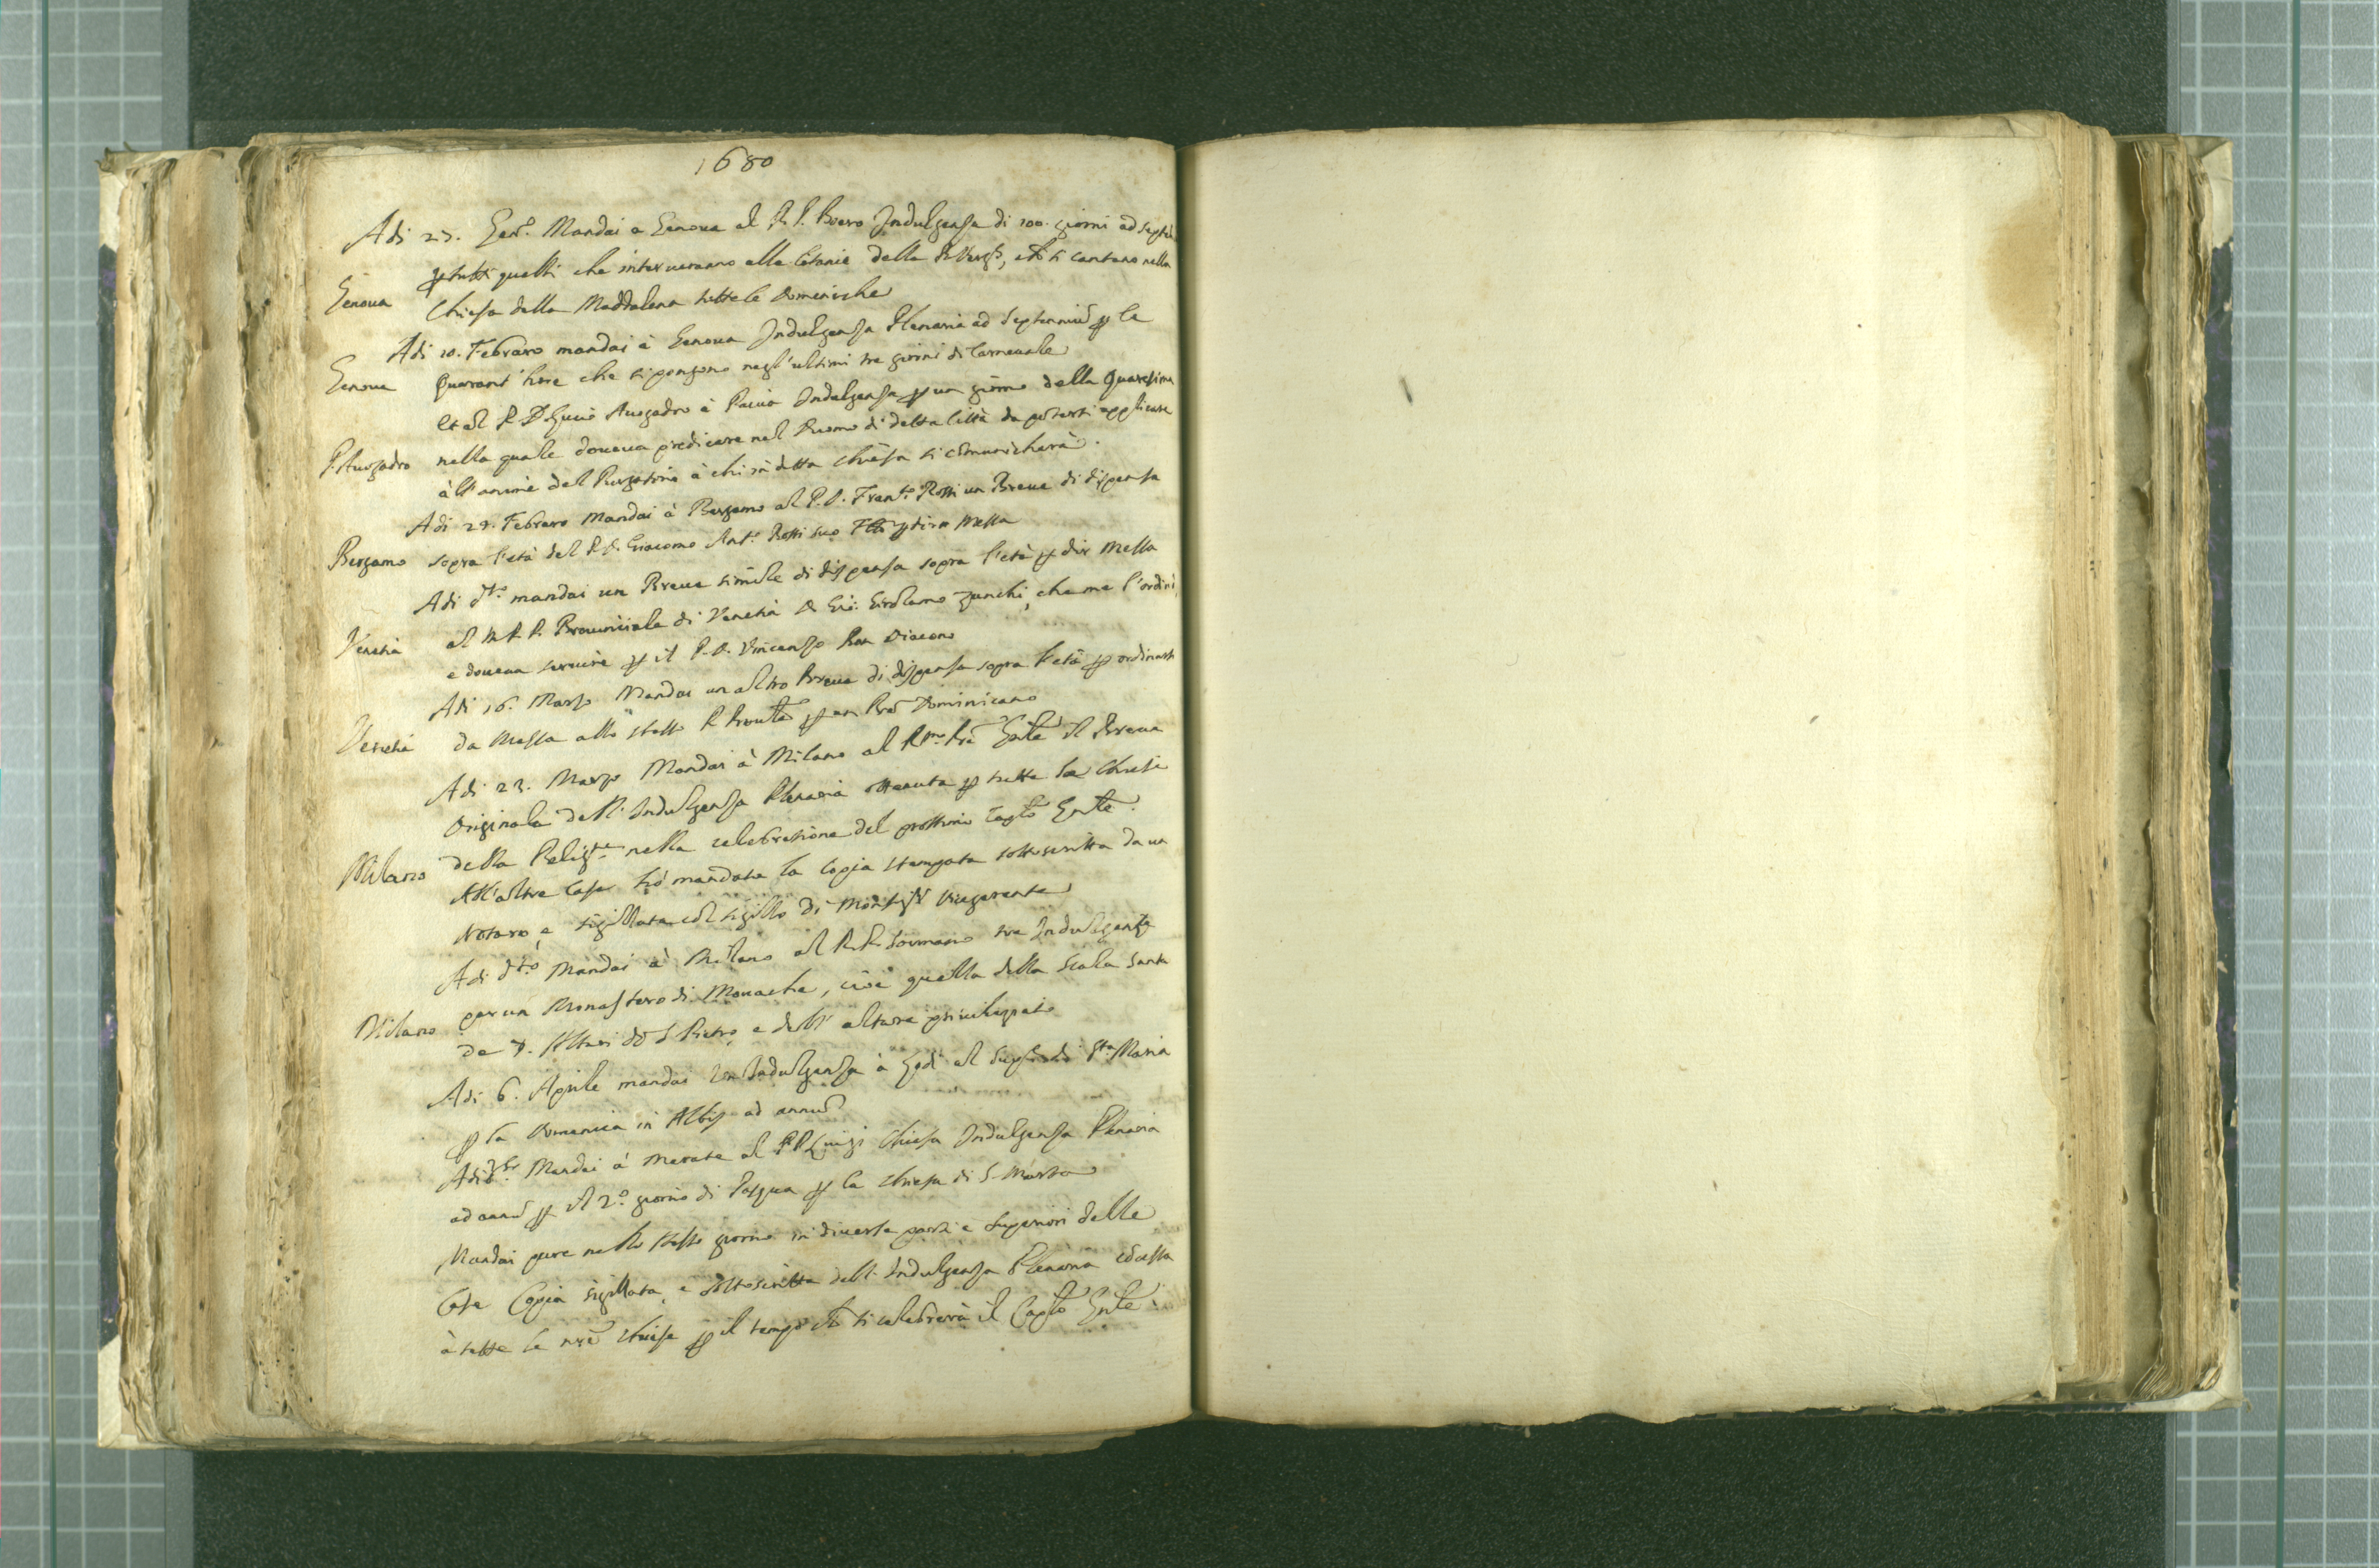 1680
Adi 27. Gen.º Mandai a Genova al R. P. Boero Indulgenza di 100. giorni ad septen
Genoua
p tutti quelli che interueranno alle letanie della B. Verg.e, che si cantano nella
Chiesa della Maddalena tutte le Domeniche
Adi 10. Febraro mandai à Genoua Indulgenza Plenaria ad Septenniũ p le
Genoua Quarant'hore che si pongono negl'ultimi tre giorni di Carneuale
Et al P. D. Auogadro à Pauia Indulgenza p un giorno della Quaresima
P. Auogadro nella quale doueua predicare nel Duomo di detta Città da potersi applicare
à ll'anime del Purgatorio à chi in detta chiesa si comunicherà.
Adi 28. Febraro Mandai à Bergamo al P. D. Fran.co Rossi un Breue di dispensa
Bergamo sopra l'età del P. D. Giacomo Ant.º Rossi suo p dire Messa
Adi d.tº mandai un Breue simile di dispensa sopra l'età p dir Messa
Venetia al M. R. P. Prouinciale di Venetia D. Gir. Girolamo Zanchi, che me l'ordinò,
e doueua seruire p il P. D. Vincenzo Diacono
Adi 16. Marzo Mandai un altro Breue di dispensa sopra l'età p ordinarsi
Venetia da Messa allo stesso P. Prou.le p un Dominicano
Adi 23. Marzo Mandai à Milano al R.mo Pre Gnle il Breue
Originale dell'Indulgenza Plenaria ottenuta p tutte le Chiese
Milano della Relig.ne nella celebratione del prossimo Caplo Gnle.
All'altre Case hò mandata la Copia stampata sottoscritta da un
Notaro, e sigillata col sigillo di Vicegerente
Adi d.tº Mandai à Milano al R. P. Sormano tre Indulgenze
Milano per un Monastero di Monache, cioè quella della Scala Santa
de 7. Altari di S. Pietro, e dell'altare priuilegiato
Adi 6. Aprile mandai un Indulgenza à Lodi al di S.ta Maria
p la Domenica in Albis ad annũ
Adi Mandai à Merate al P. P. Luigi Chiesa Indulgenza Plenaria
ad annũ p il 2.º giorno di Pasqua p la chiesa di S. Marta
Mandai pure nello stesso giorno in diuerse parti a Superiori delle
Case Copia sigillata, e sottoscritta dell'Indulgenza Plenaria cõcessa
à tutte le nre chiese p il tempo che si celebrerà il Caplo Gnle.